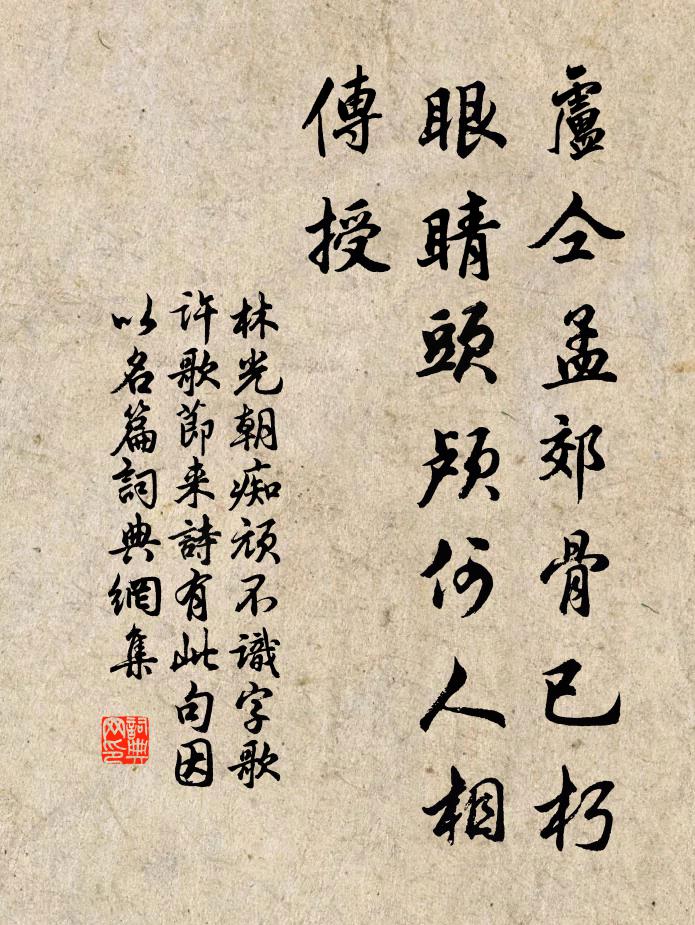 盧仝孟郊骨已朽
眼睛頭顱何人相
傳授
林光朝痴頑不識字歌
許歌節来詩有此句因
以名篇詞典網集
詞典
网印